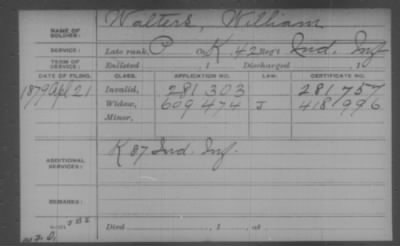 NAME OF SOLDIER: Walters, William
SERVICE: Late rank P Co. K, 42 Reg't Ind. Inf.
TERM OF SERVICE: Enlisted , 1 Discharged , 1
DATE OF FILING. CLASS. APPLICATION NO. LAW. CERTIFICATE NO.
1879 Apl 21 Invalid, 281 303 281 757
Widow, 609 474 J 418 996
Minor,
ADDITIONAL SERVICES: K 87 Ind. Inf.
REMARKS:
Died , 1 , at